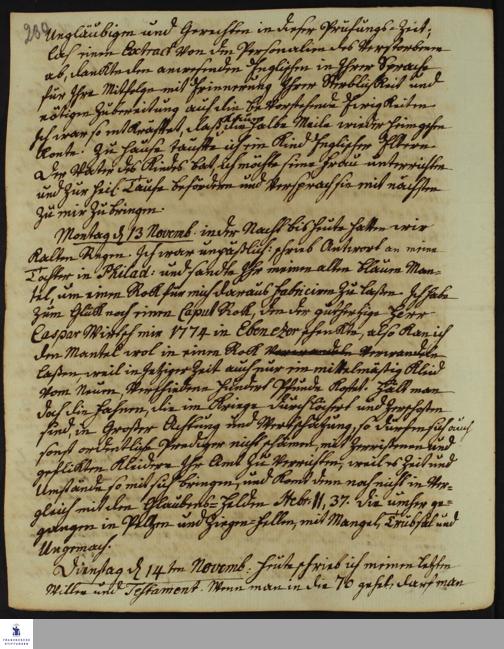 239
Ungläubigen und Gerechten in dieser Prüfungs-Zeit;
las einen Extract von den Personalien des Verstorbenen
ab, dankte den anwesenden Englischen in Ihrer Sprache
für Ihre Mitfolge mit Erinnerung Ihrer Sterblichkeit und
nötigen Zubereitung auf die bevorstehende Ewigkeiten
ich war so entkräfftet, daß kaum die halbe Meile wieder heimgehen
konte. Zu Hause tauffte ich ein Kind Englischer Eltern
Der Vater des Kindes bat ich möchte seine Frau unterrichten
und zur heil. Tauffe befördern und versprach sie mit nächsten
zu mir zu bringen.
Montag d 13 Novemb. in der Nacht bis heute hatten wir
kalten Regen. Ich war unpäßlich: schrieb Antwort an meine
Tochter in Philad: und sandte Ihr meinen alten blauen Man-
tel, um einen Rock für mich daraus fabriciren zu laßen. Ich habe
zum Glück noch einen Caput Rock, den der gutherzige Herr
Caspar Wirtsch mir 1774 in Ebenezer schenkte, also kan ich
den Mantel wol in einen Rock verwandeln
laßen, weil in jetziger Zeit auch nur ein mittelmäßig Kleid
vom Neuen, verschiedene hundert Pfunde kostet. Hält man
doch die Fahnen, die im Kriege durchlöchert und zerschoßen
sind, in Großer Achtung und Werthschätzung, so dürfen sich auch
sonst ordentliche Prediger nicht schämen, mit zerrissenen und
geflickten Kleidern Ihr Amt zu verrichten, weil es Zeit und
Umstände so mit sich bringen, und komt dennoch nicht in Ver-
gleich mit den Glaubens-Helden Hebr. 11, 37. Die umher ge-
gangen in Pelzen und Ziegen-Fellen, mit Mangel, Trübsal und
Ungemach.
Dienstag d 14ten Novemb: heute schrieb ich meinen letzten
Willen und Testament. Wenn man in die 70 gehet, darf man
FRANCKESCHE
STIFTUNGEN